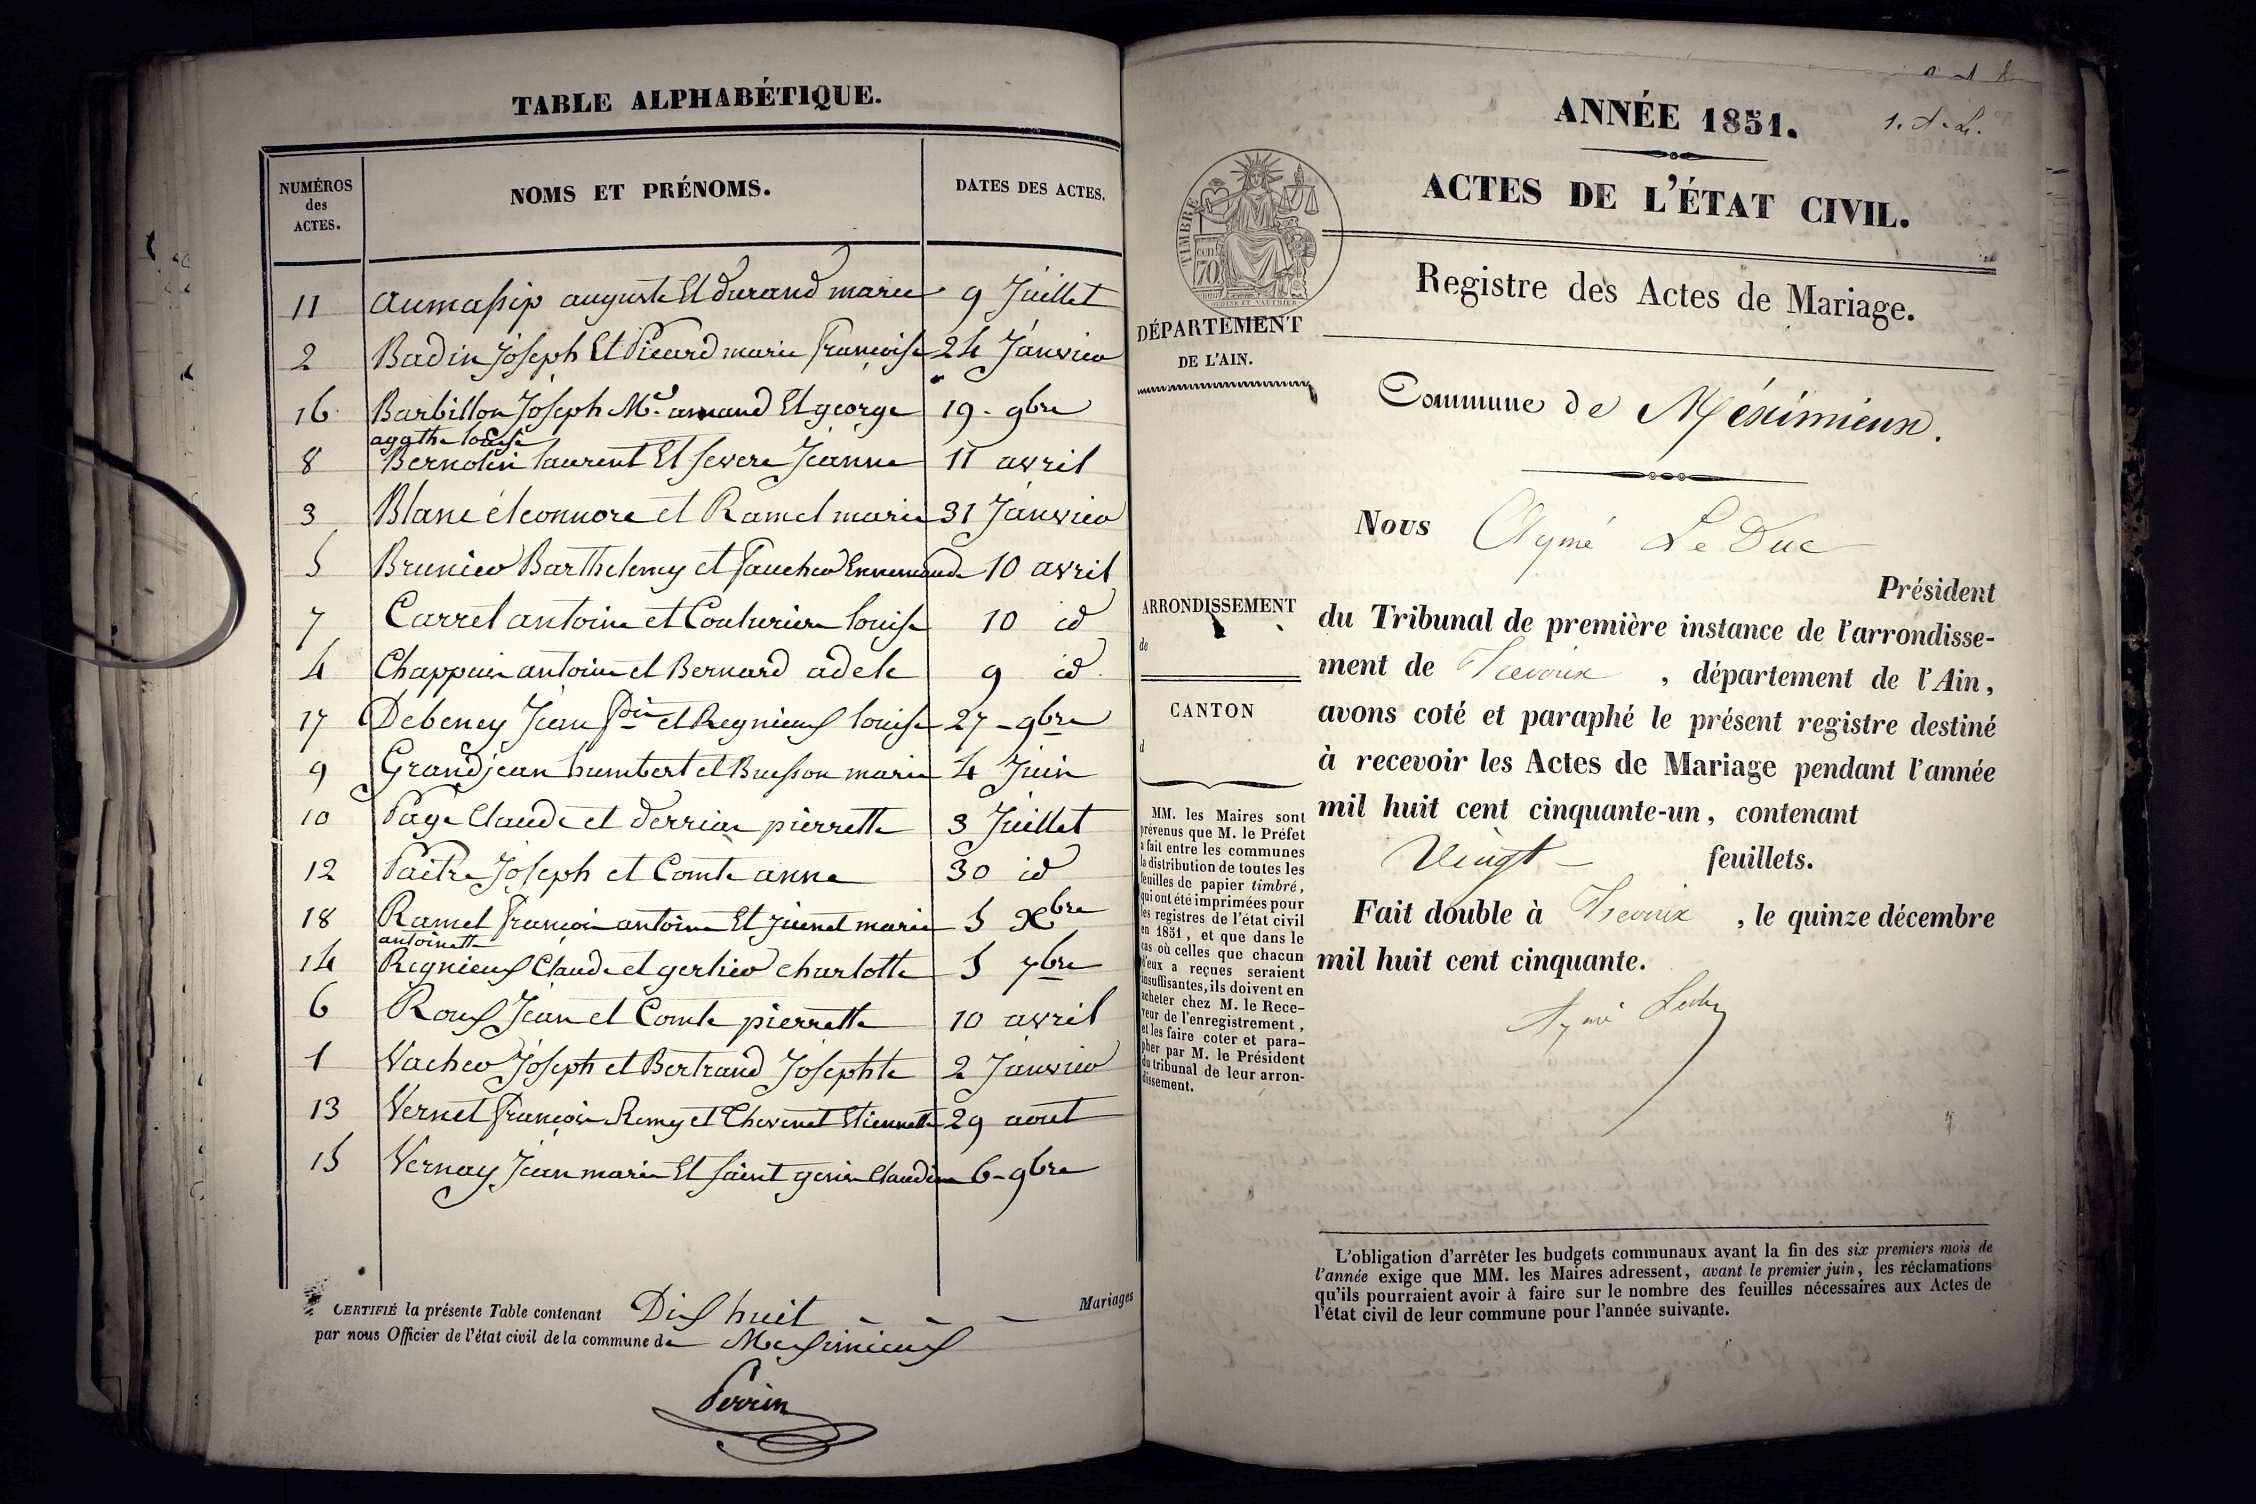 TABLE ALPHABÉTIQUE.
NUMÉROS des ACTES.
NOMS ET PRÉNOMS.
DATES DES ACTES.
11 aumassip auguste Et durand marie 9 Juillet
2 Badin Joseph Et Picard marie françoise 24 Janvier
16 Barbillon Joseph Me. amand Et george 19 - 9bre
agathe louise
8 Bernolin laurent Et severe Jeanne 11 avril
3 Blanc éleonnore et Ramel marie 31 Janvier
5 Brunier Barthelemy et faucher Ennemonde 10 avril
7 Carrel antoine et Couturier louise 10 id
4 Chappuis antoine et Bernard adele 9 id
17 Debeney Jean et Regnieux louise 27 - 9bre
9 Grandjean humbert et Buisson marie 4 Juin
10 Page Claude et derriar pierrette 3 Juillet
12 Paitre Joseph et Comte anne 30 id
18 Ramel françois antoine Et marie 5 Xbre
antoinette
14 Regnieux Claude et charlotte 5 7bre
6 Roux Jean et Comte pierrette 10 avril
1 Vacher Joseph et Bertrand Josephte 2 Janvier
13 Vernet françois Remy et Chevenet Etiennette 29 aout
15 Vernay Jean marie Et saint genis Claudine 6 - 9bre
CERTIFIÉ la présente Table contenant Dix huit Mariages
par nous Officier de l'état civil de la commune de Meximieux
Perrin
1. A. L.
ANNÉE 1851.
ACTES DE L'ÉTAT CIVIL.
TIMBRE
70
Registre des Actes de Mariage.
DÉPARTEMENT
DE L'AIN.
Commune de Méximieux.
ARRONDISSEMENT
de
CANTON
d
MM. les Maires sont
prévenus que M. le Préfet
a fait entre les communes
la distribution de toutes les
feuilles de papier timbré,
qui ont été imprimées pour
les registres de l'état civil
en 1851, et que dans le
cas où celles que chacun
d'eux a reçues seraient
insuffisantes, ils doivent en
acheter chez M. le Rece-
veur de l'enregistrement,
et les faire coter et para-
pher par M. le Président
du tribunal de leur arron-
dissement.
Nous Aymé Le Duc
Président
du Tribunal de première instance de l'arrondisse-
ment de Trevoux, département de l'Ain,
avons coté et paraphé le présent registre destiné
à recevoir les Actes de Mariage pendant l'année
mil huit cent cinquante-un, contenant
Vingt feuillets.
Fait double à Trevoux, le quinze décembre
mil huit cent cinquante.
Aymé Leduc
L'obligation d'arrêter les budgets communaux avant la fin des six premiers mois de
l'année exige que MM. les Maires adressent, avant le premier juin, les réclamations
qu'ils pourraient avoir à faire sur le nombre des feuilles nécessaires aux Actes de
l'état civil de leur commune pour l'année suivante.